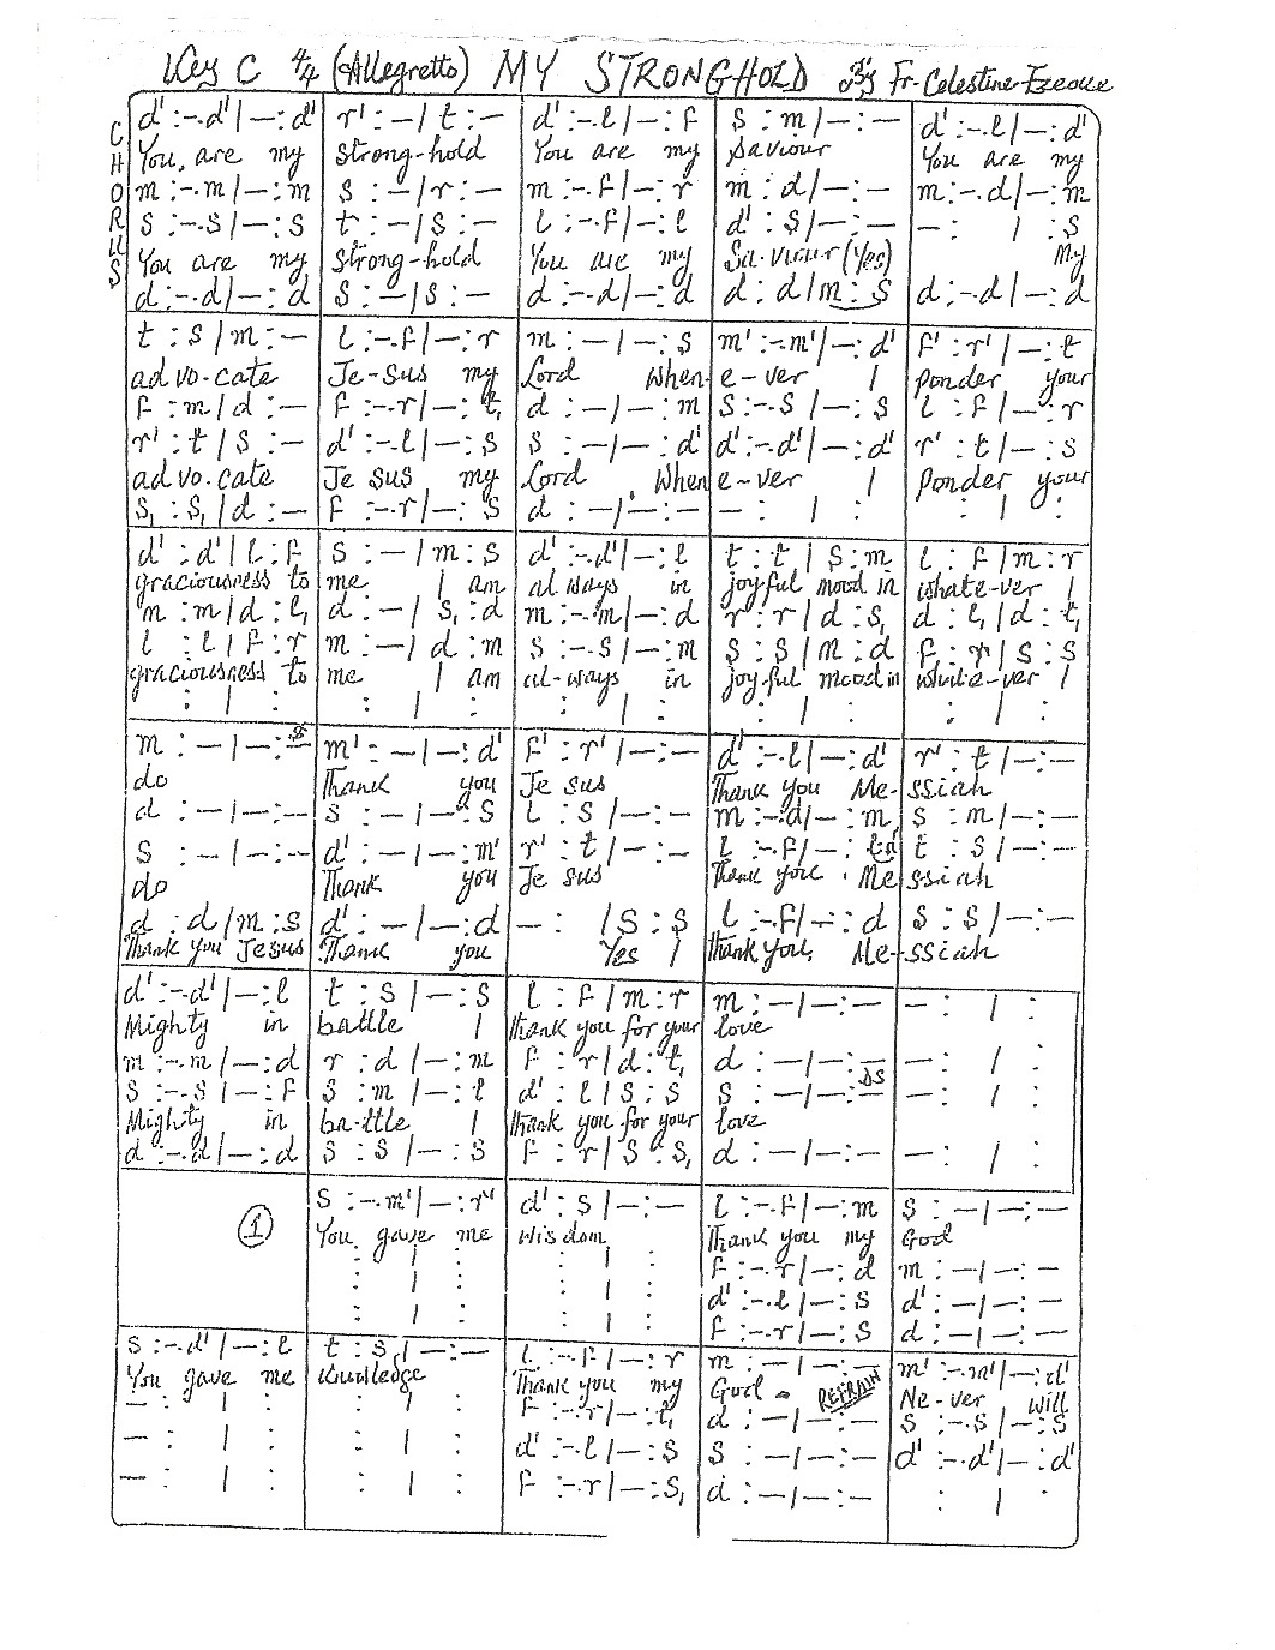 Key C 4/4 (Allegretto) MY STRONGHOLD By Fr. Celestine Ezeoue
CHORUS
d' :-.d'/ —: d' | r' : — / t : — | d' :-.l / —: f | s : m / —: — | d' :-.l / —: d'
You, are my | strong-hold | You are my | Saviour | You are my
m :-.m / —: m | s : — / r : — | m :-.f / —: r | m : d / —: — | m :-.d / —: m
s :-.s / —: s | t : — / s : — | l :-.f / —: l | d' : s / —: — | — : / : s
You are my | strong-hold | You are my | Sa-viour (Yes) | My
d :-.d / —: d | s : — / s : — | d :-.d / —: d | d : d / m : s | d :-.d / —: d
t : s / m : — | l :-.f / —: r | m : — / —: s | m' :-.m' / —: d' | f' : r' / —: t
ad vo-cate | Je-sus my | Lord When- | e-ver I | Ponder your
f : m / d : — | f :-.r / —: t, | d : — / —: m | s :-.s / —: s | l : f / —: r
r' : t / s : — | d' :-.l / —: s | s : — / —: d' | d' :-.d' / —: d' | r' : t / —: s
ad vo-cate | Je sus my | Lord . When | e-ver I | Ponder your
s, : s, / d : — | f :-.r / —: s | d : — / —: — | — : / : | : / :
d' : d' / l : f | s : — / m : s | d' :-.d' / —: l | t : t / s : m | l : f / m : r
graciousness to | me I am | al ways in | joy-ful mood in | whate-ver I
m : m / d : l, | d : — / s, : d | m :-.m / —: d | r : r / d : s, | d : l, / d : t,
l : l / f : r | m : — / d : m | s :-.s / —: m | s : s / m : d | f : r / s : s
graciousness to | me I am | al-ways in | joy-ful mood in | whate-ver I
: / : | : / : | : / : | : / : | : / :
m : — / —: — | m' : — / —: d' | f' : r' / —: — | d' :-.l / —: d' | r' : t / —: —
do | Thank you | Je sus | Thank you Me- | ssiah
d : — / —: — | s : — / —: s | l : s / —: — | m :-.d / —: m | s : m / —: —
s : — / —: — | d' : — / —: m' | r' : t / —: — | l :-.f / —: | t : s / —: —
do | Thank you | Je sus | Thank you . Me | ssiah
d : d / m : s | d' : — / —: d | — : / s : s | l :-.f / —: d | s : s / —: —
Thank you Jesus | Thank you | Yes I | Thank you, Me- | ssiah
d' :-.d' / —: l | t : s / —: s | l : f / m : r | m : — / —: — | — : / :
Mighty in | battle I | Thank you for your | love
m :-.m / —: d | r : d / —: m | f : r / d : t, | d : — / —: — | — : / :
DS
s :-.s / —: f | s : m / —: t | d' : l / s : s | s : — / —: — | — : / :
Mighty in | ba-ttle I | Thank you for your | love
d :-.d / —: d | s : s / —: s | f : r / s : s, | d : — / —: — | — : / :
① | s :-.m' / —: r' | d' : s / —: — | l :-.f / —: m | s : — / —: —
You gave me | Wisdom | Thank you my | God
: / : | : / : | f :-.r / —: d | m : — / —: —
: / : | : / : | d' :-.l / —: s | d' : — / —: —
: / : | : / : | f :-.r / —: s | d : — / —: —
s :-.d' / —: l | t : s / —: — | l :-.f / —: r | m : — / —: — | m' :-.m' / —: d'
You gave me | Knowledge | Thank you my | God REFRAIN | Ne-ver , will
— : / : | : / : | f :-.r / —: t, | d : — / —: — | s :-.s / —: s
— : / : | : / : | d' :-.l / —: s | s : — / —: — | d' :-.d' / —: d'
— : / : | : / : | f :-.r / —: s, | d : — / —: — | : / :